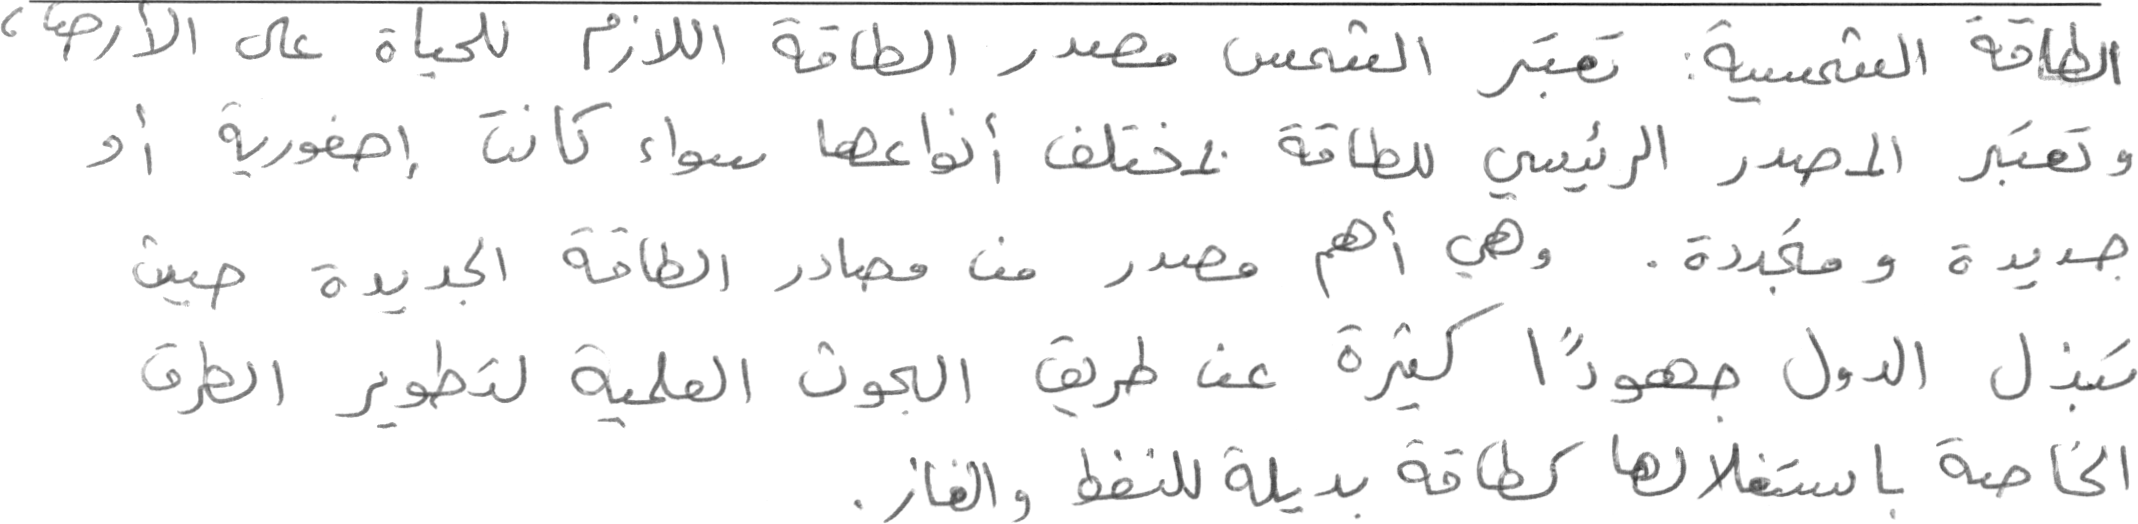 الطاقة الشمسية: تعتبر الشمس مصدر الطاقة اللازم للحياة على الأرض،
وتعتبر المصدر الرئيسي للطاقة بمختلف أنواعها سواء كانت إحفورية أو
جديدة ومتجددة. وهي أهم مصدر من مصادر الطاقة الجديدة حيث
تبذل الدول جهودًا كثيرة عن طريق البحوث العلمية لتطوير الطرق
الخاصة باستغلالها كطاقة بديلة للنفط والغاز.